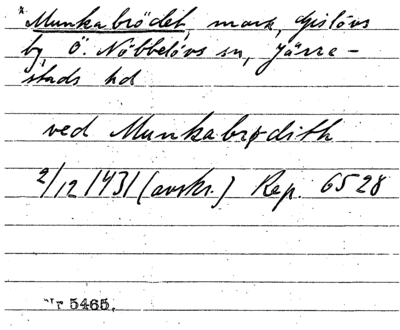 *Munkabrödet, mark, Gislövs
by Ö. Nöbbelövs sn, Järre-
stads hd
ved Munkabrødith
2/12 1431 (avskr.) Rep. 6528
Nr 5465.